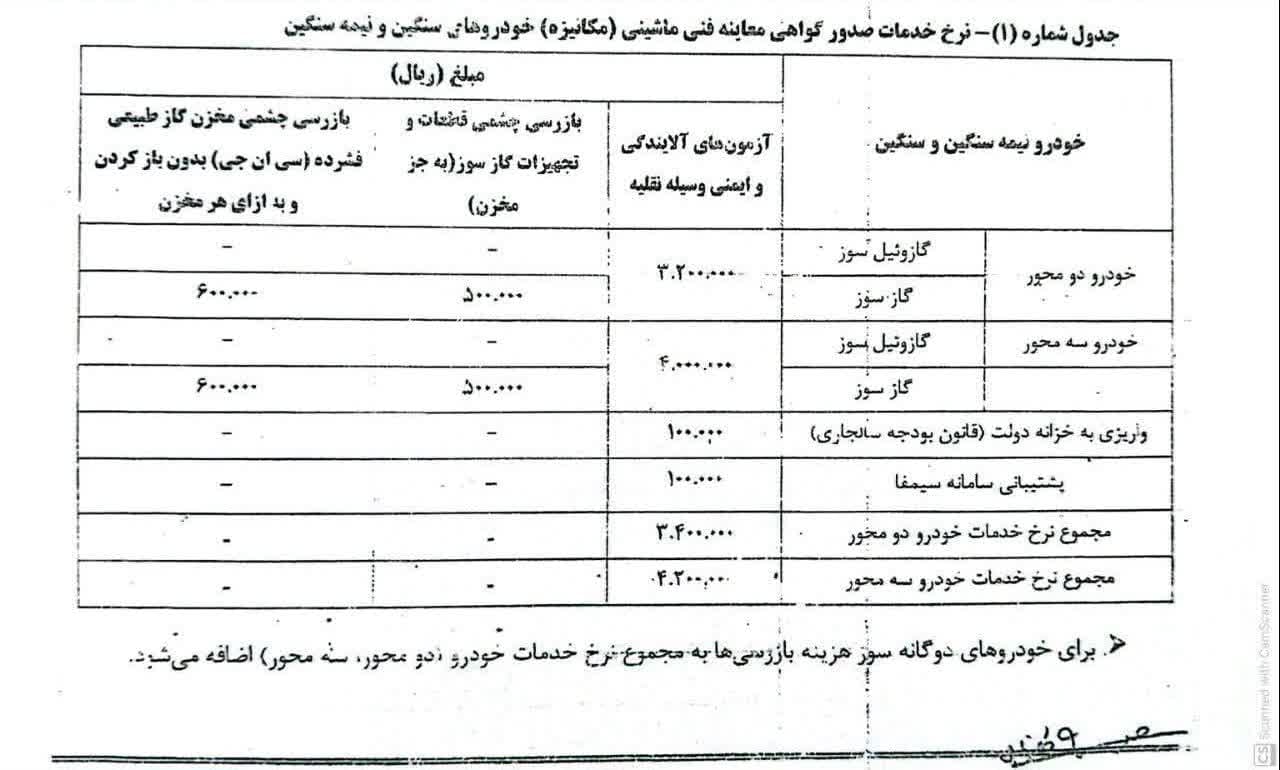 جدول شماره (۱)- نرخ خدمات صدور گواهی معاینه فنی ماشینی (مکانیزه) خودروهای سنگین و نیمه سنگین
خودرو نیمه سنگین و سنگین
مبلغ (ریال)
آزمون‌های آلایندگی
و ایمنی وسیله نقلیه
بازرسی چشمی قطعات و
تجهیزات گاز سوز(به جز
مخزن)
بازرسی چشمی مخزن گاز طبیعی
فشرده (سی ان جی) بدون باز کردن
و به ازای هر مخزن
خودرو دو محور
گازوئیل سوز
۳.۲۰۰.۰۰۰
-
-
گاز سوز
۵۰۰.۰۰۰
۶۰۰.۰۰۰
خودرو سه محور
گازوئیل سوز
۴.۰۰۰.۰۰۰
-
-
گاز سوز
۵۰۰.۰۰۰
۶۰۰.۰۰۰
واریزی به خزانه دولت (قانون بودجه سالجاری)
۱۰۰.۰۰۰
-
-
پشتیبانی سامانه سیمفا
۱۰۰.۰۰۰
-
-
مجموع نرخ خدمات خودرو دو محور
۳.۴۰۰.۰۰۰
-
-
مجموع نرخ خدمات خودرو سه محور
۴.۲۰۰.۰۰۰
-
-
برای خودروهای دوگانه سوز هزینه بازرسی‌ها به مجموع نرخ خدمات خودرو (دو محور، سه محور) اضافه می‌شود.
CS Scanned with CamScanner